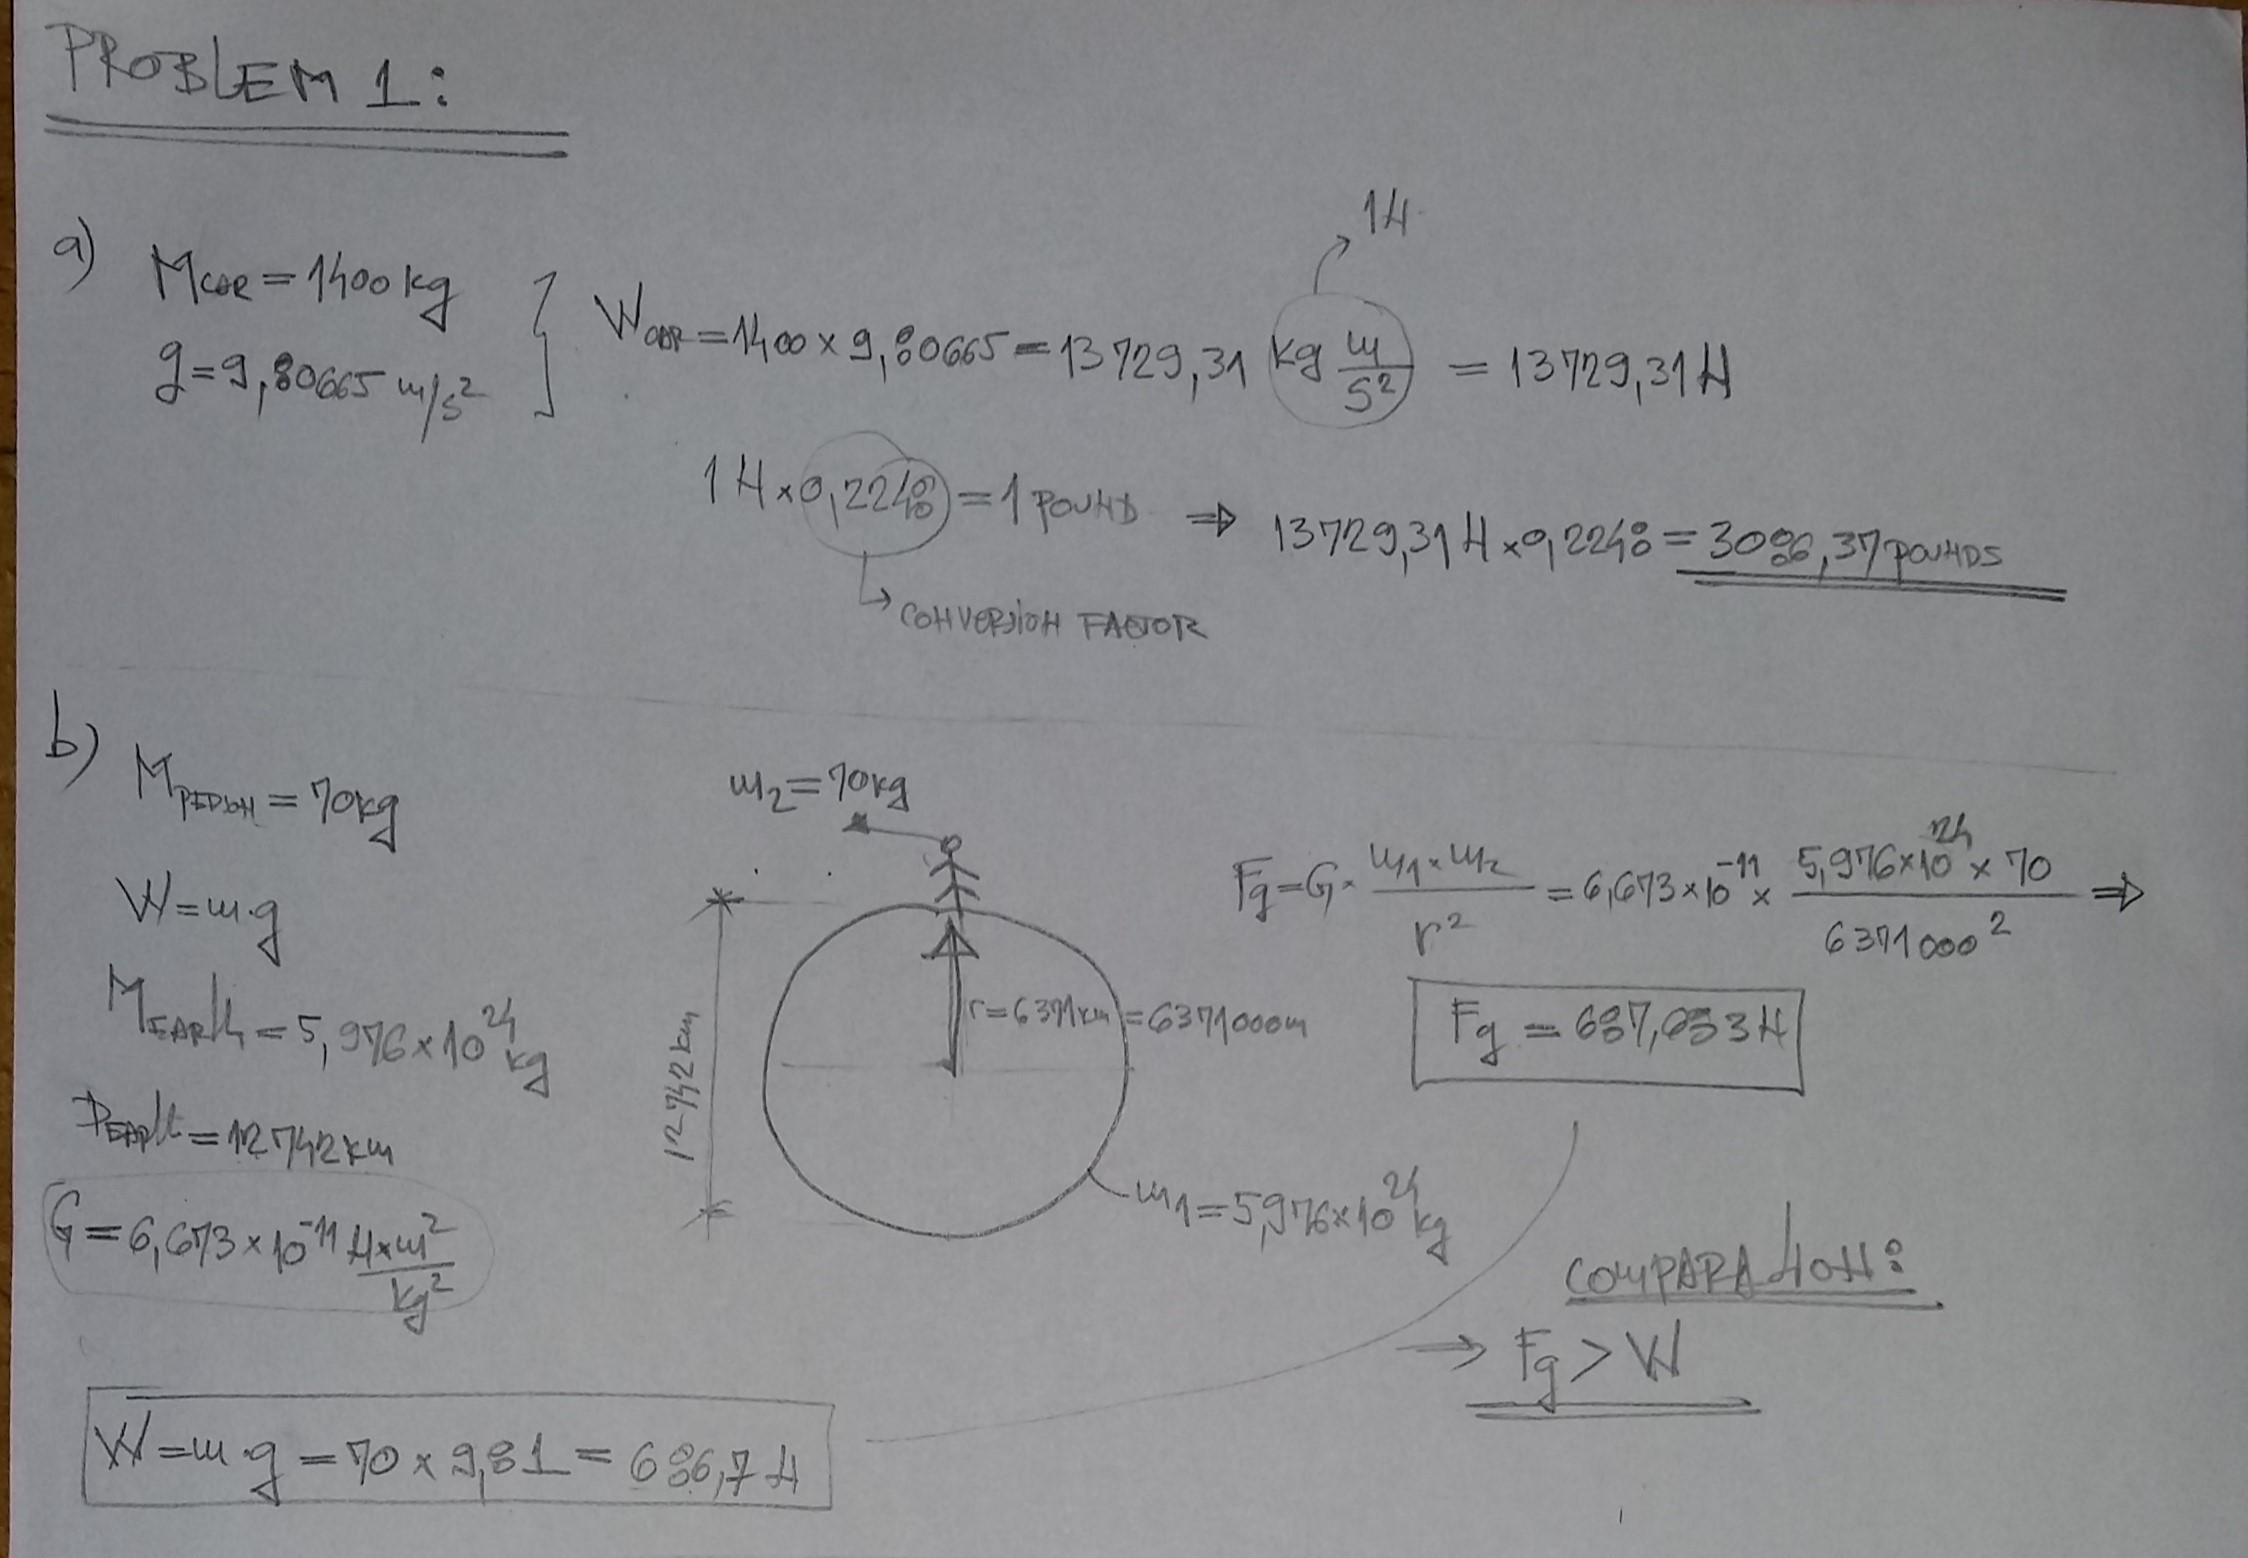 PROBLEM 1:
a)
M_CAR = 1400 kg
g = 9,80665 m/s²
W_CAR = 1400 × 9,80665 = 13729,31 kg m/s² = 13729,31 N
1N
1 N × 0,2248 = 1 POUND ⇒ 13729,31 N × 0,2248 = 3086,37 POUNDS
CONVERSION FACTOR
b)
M_PERSON = 70 kg
W = m·g
M_EARth = 5,976 × 10²⁴ kg
D_EARth = 12742 km
G = 6,673 × 10⁻¹¹ N×m²/kg²
W = m·g = 70 × 9,81 = 686,7 N
m₂ = 70 kg
12742 km
r = 6371 km = 6371000 m
m₁ = 5,976 × 10²⁴ kg
Fg = G · m₁ × m₂ / r² = 6,673 × 10⁻¹¹ × 5,976 × 10²⁴ × 70 / 6371000² ⇒
Fg = 687,683 N
COMPARAtioN:
→ Fg > W